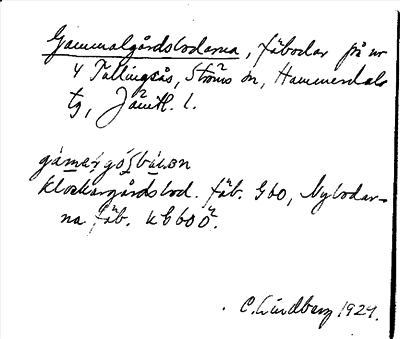 Gammalgårdsbodarna, fäbodar på nr
4 Tullingsås, Ströms sn, Hammerdals
tg, Jämtl. l.
Klockargårdsbod. fäb. Gbo, Nybodar-
na fäb.
C. Lindberg 1924.